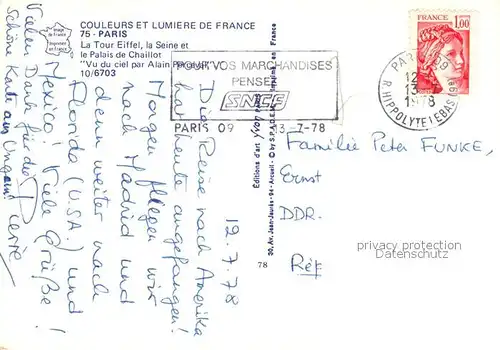 COULEURS ET LUMIERE DE FRANCE
75 - PARIS
La Tour Eiffel, la Seine et
le Palais de Chaillot
"Vu du ciel par Alain Perceval"
10/6703
Image de France
Imprimée en France
POUR VOS MARCHANDISES
PENSEZ
SNCF
PARIS 09 13-7-78
FRANCE
1,00
PARIS 09
12
13-7
1978
R. HIPPOLYTE LEBAS (9E)
12.7.78
Die Reise nach Amerika
hat heute angefangen!
Morgen fliegen wir
nach Madrid und
dann weiter nach
Florida (U.S.A.) und
Mexico! Viele Grüße!
Vielen Dank für die
Schöne Karte aus Ungarn!
Pierre
Éditions d'art yvon
30, Av. Jean-Jaurès - 94 - Arcueil - © by S.P.A.D.E.M.
Imprimé en France
78
Familie Peter FUNKE,
Ernst
DDR.
Réf
privacy protection
Datenschutz